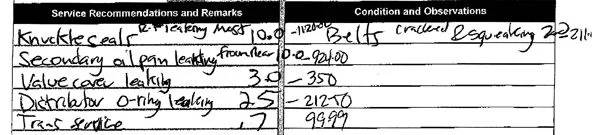 Service Recommendations and Remarks Condition and Observations
Knuckle seals leaking most 10.0 -1120.00 Belts cracked & squeaking
Secondary oil pan leaking from rear 10.0 -924.00
Valve cover leaking 3.0 -350
Distributor O-ring leaking 2.5 -212.50
Trans service .7 99.99